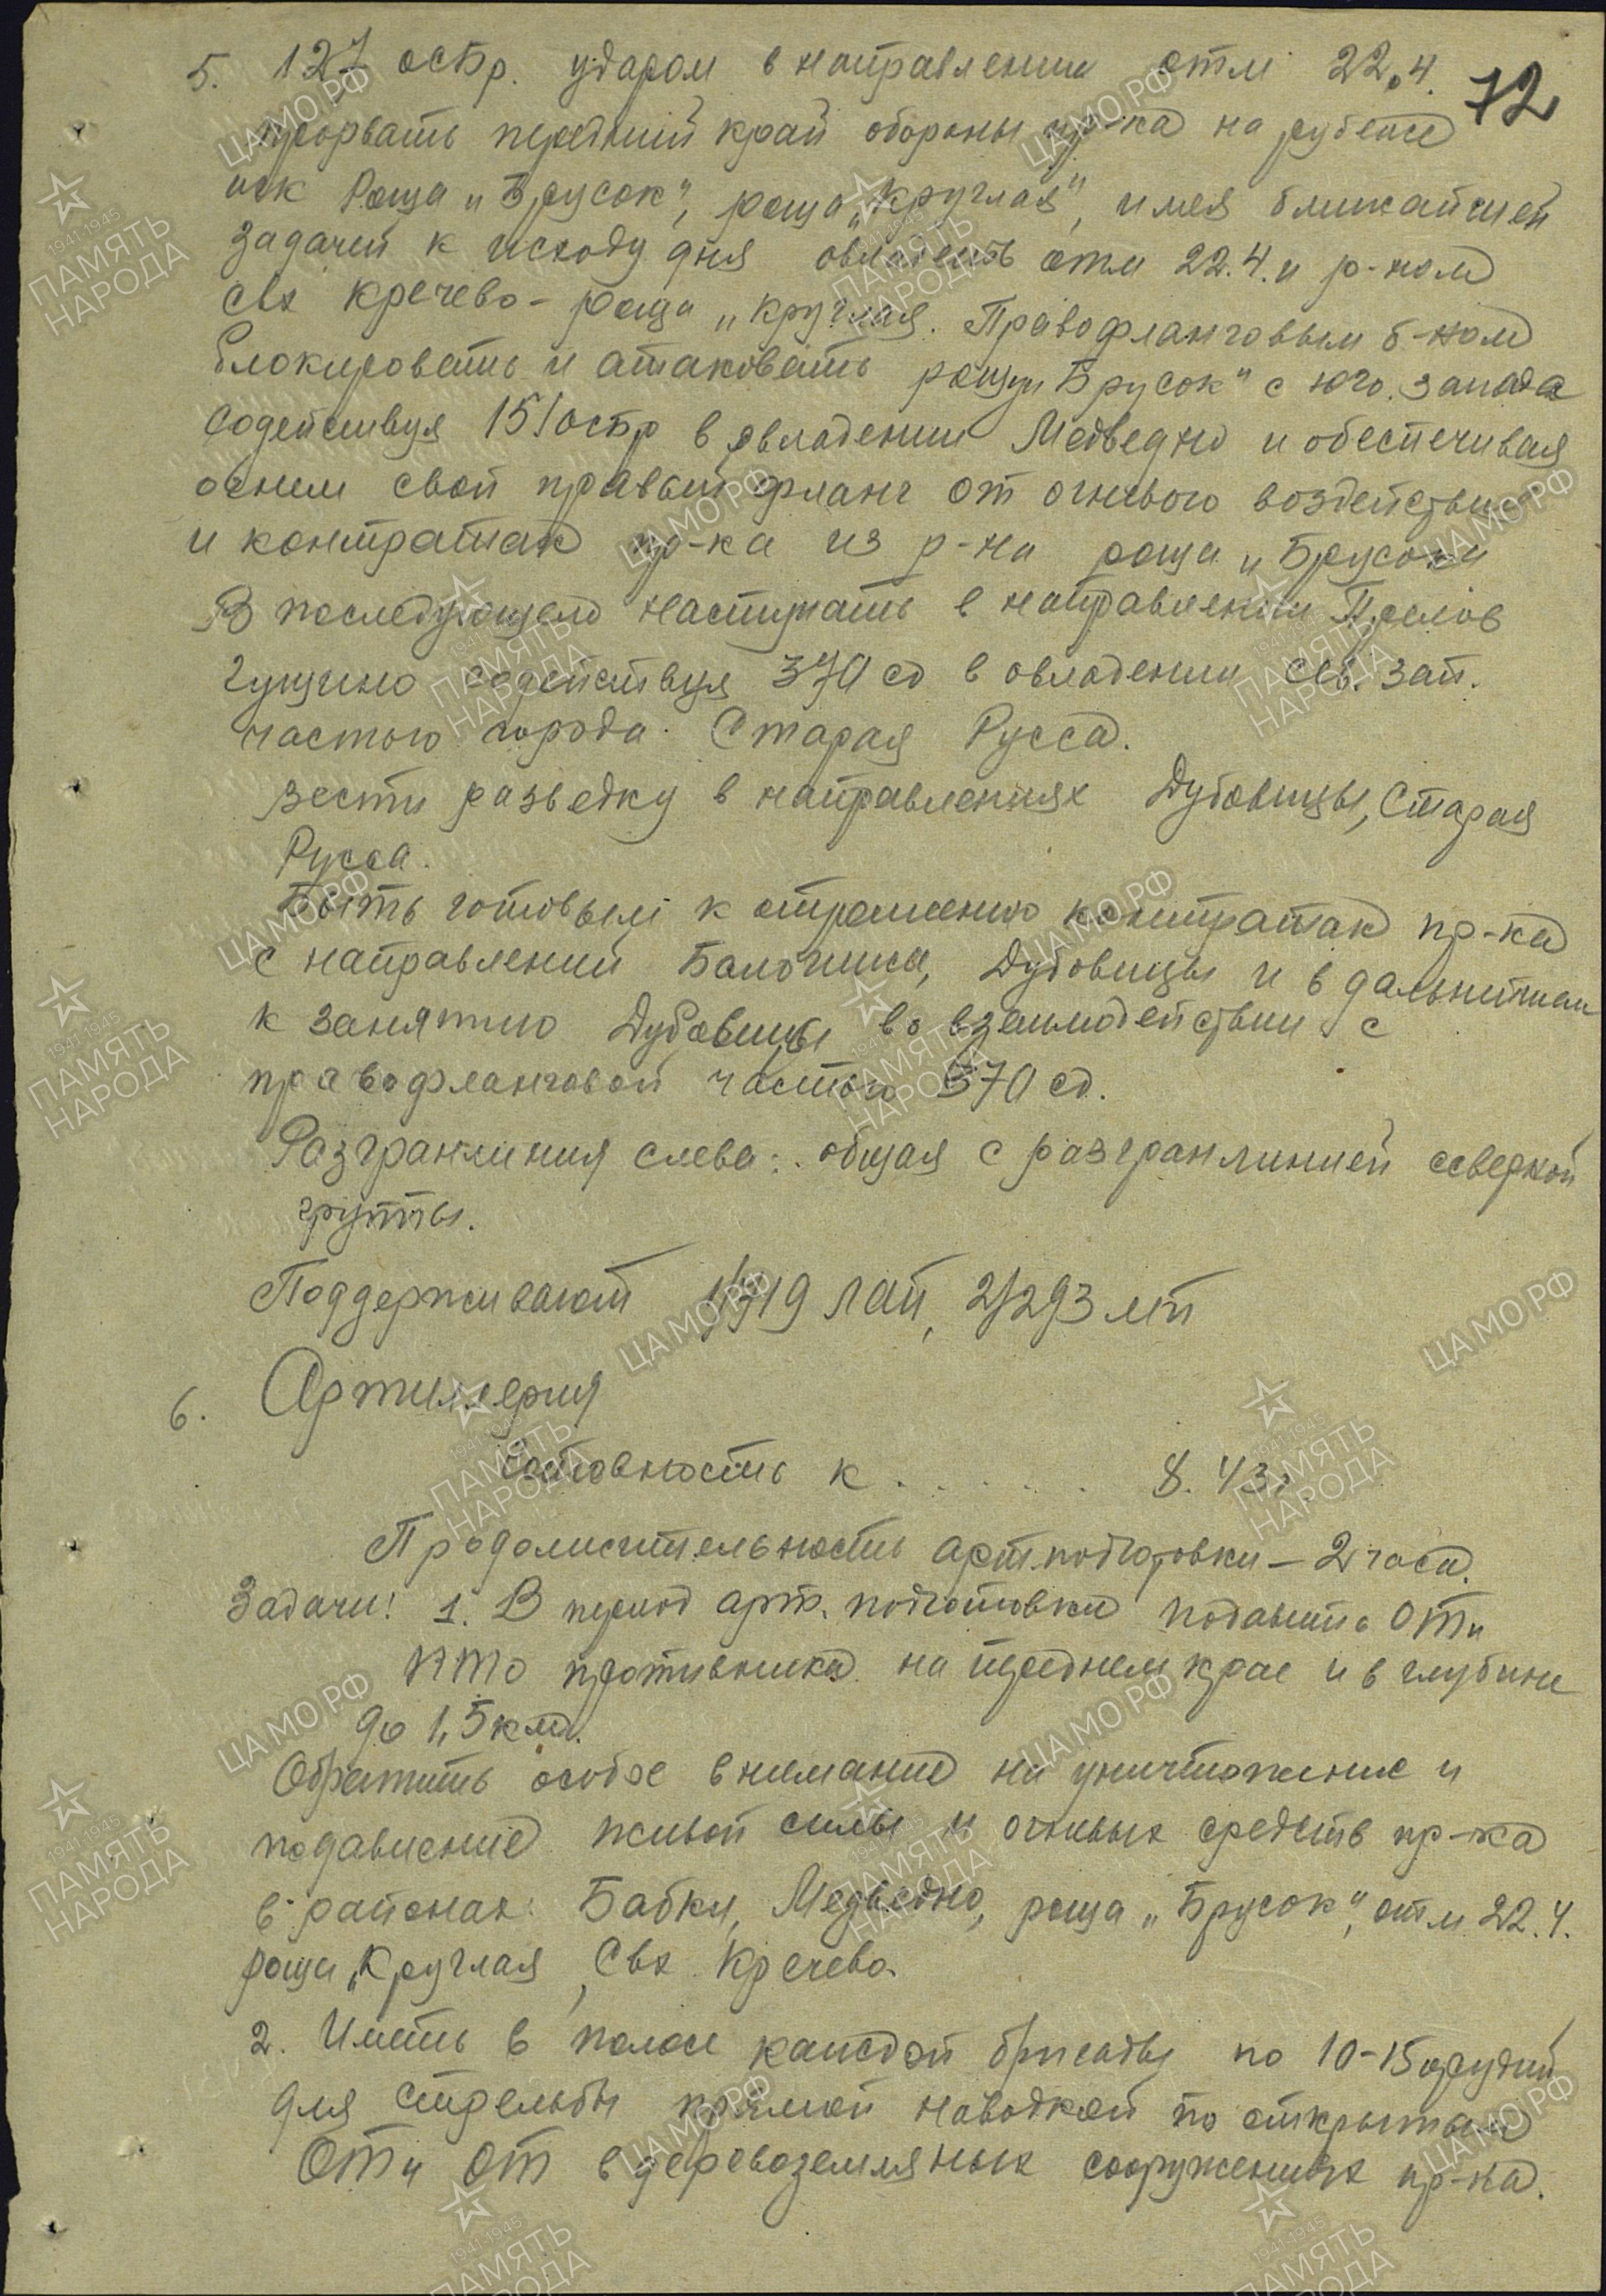 72
5. 127 осбр. ударом в направлении отм 22.4.
прорвать передний край обороны пр-ка на рубеже
иск роща „Брусок", роща „Круглая", имея ближайшей
задачей к исходу дня овладеть отм 22.4. и р-ном
свх Кречево - роща „Круглая. Правофланговым б-ном
блокировать и атаковать рощу „Брусок" с юго. запада
содействуя 151 осбр в овладении Медведно и обеспечивая
огнем свой правый фланг от огневого воздействия
и контратак пр-ка из р-на роща „Брусок"
В последующем наступать в направлении
Гущино содействуя 370 сд в овладении сев. зап.
частью города Старая Русса.
Вести разведку в направлениях Дубовицы, Старая
Русса.
Быть готовым к отражению контратак пр-ка
с направлений Балогижа, Дубовицы и в дальнейшем
к занятию Дубовицы во взаимодействии с
правофланговой частью 370 сд.
Разгранлиния слева: общая с разгранлинией северной
группы.
Поддерживают 1/719 лап, 2/293 мп
6. Артиллерия
Готовность к . . . . . 8. 43г.
Продолжительность артподготовки – 2 часа.
Задачи: 1. В период арт. подготовки подавить ОТ и
ПТО противника на переднем крае и в глубине
до 1,5 км.
Обратить особое внимание на уничтожение и
подавление живой силы и огневых средств пр-ка
в районах: Бабки, Медведно, роща „Брусок", отм 22.4.
роща „Круглая, Свх Кречево.
2. Иметь в полосе каждой бригады по 10-15 орудий
для стрельбы прямой наводкой по открытым
ОТ и ОТ в деревоземляных сооружениях пр-ка.
ЦАМО РФ
1941-1945
ПАМЯТЬ
НАРОДА